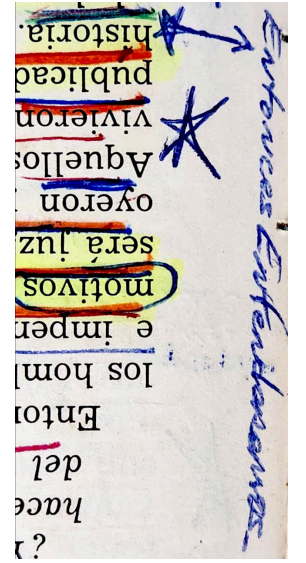 hace
del
Enton
los homb
e impen
motivos
será juz
oyeron
Aquellos
vivieron
publicad
historia.
Entonces Entenderemos.